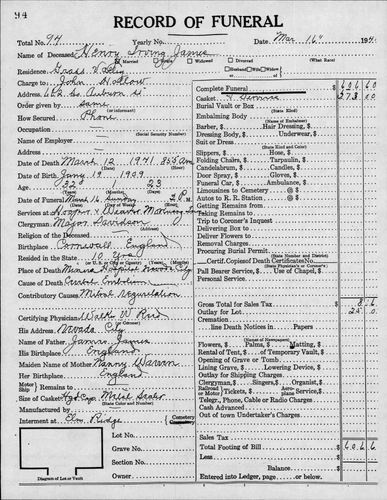 94
RECORD OF FUNERAL
Total No. 94 Yearly No. Date Mar 16 194
Name of Deceased Henry Irving James
Married Widowed Divorced (What Race)
Residence Grass Valley Husband Wife Widow or
Charge to John Hollow
Address So. Auburn St
Order given by same
How Secured Phone
Occupation
(Social Security Number)
Name of Employer
Address
Date of Death March 12 1941 8:55 am
Date of Birth Jany 19 1909
Age 32 23
(Years) (Months) (Days)
Date of Funeral March 16 Sunday 2 P.M.
Services at Hooper & Weaver Mortuary
Clergyman Major Davidson
Religion of the Deceased
Birthplace Cornwall, England
Resided in the State 10 Yrs
Place of Death Miners Hospital Nevada City
Cause of Death Embolism
Contributory Causes Mitral regurgitation
Certifying Physician Walter W Reid
His Address Nevada City
Name of Father James James
His Birthplace England
Maiden Name of Mother Fanny Warren
Her Birthplace England
Motor Ship } Remains to
Size of Casket
(State Color and Number)
Manufactured by
Interment at Elm Ridge Cemetery
Crematory
Lot No.
Grave No.
Section No.
Owner
Diagram of Lot or Vault
Complete Funeral
Casket & Service
Burial Vault or Box
(State Kind)
Embalming Body
Barber, $ Hair Dressing, $
Dressing Body, $ Underwear, $
Suit or Dress
(State Kind and Color)
Slippers, $ Hose, $
Folding Chairs, $ Tarpaulin, $
Candelabrum, $ Candles, $
Door Spray, $ Gloves, $
Funeral Car, $ Ambulance, $
Limousines to Cemetery @ $
Autos to R. R. Station @ $
Getting Remains from
Taking Remains to
Trip to Coroner's Inquest
Delivering Box to
Deliver Flowers to
Removal Charges
Procuring Burial Permit
(State Number and District)
Certif. Copies of Death Certificates No.
(State Physician's or Coroner's)
Pall Bearer Service, $ Use of Chapel, $
Personal Service
Gross Total for Sales Tax
Outlay for Lot
Cremation
line Death Notices in Papers
(Names of Newspapers)
Flowers, $ Palms, $ Matting, $
Rental of Tent, $ of Temporary Vault, $
Opening of Grave or Tomb
Lining Grave, $ Lowering Device, $
Outlay for Shipping Charges
Clergyman, $ Singers, $ Organist, $
Railroad or Motor } Tickets, $ Aero-plane } Service, $
Telegr., Phone, Cable or Radio Charges
Cash Advanced
Out of town Undertaker's Charges
Sales Tax
Total Footing of Bill
Less
Balance
Entered into Ledger, page or below.